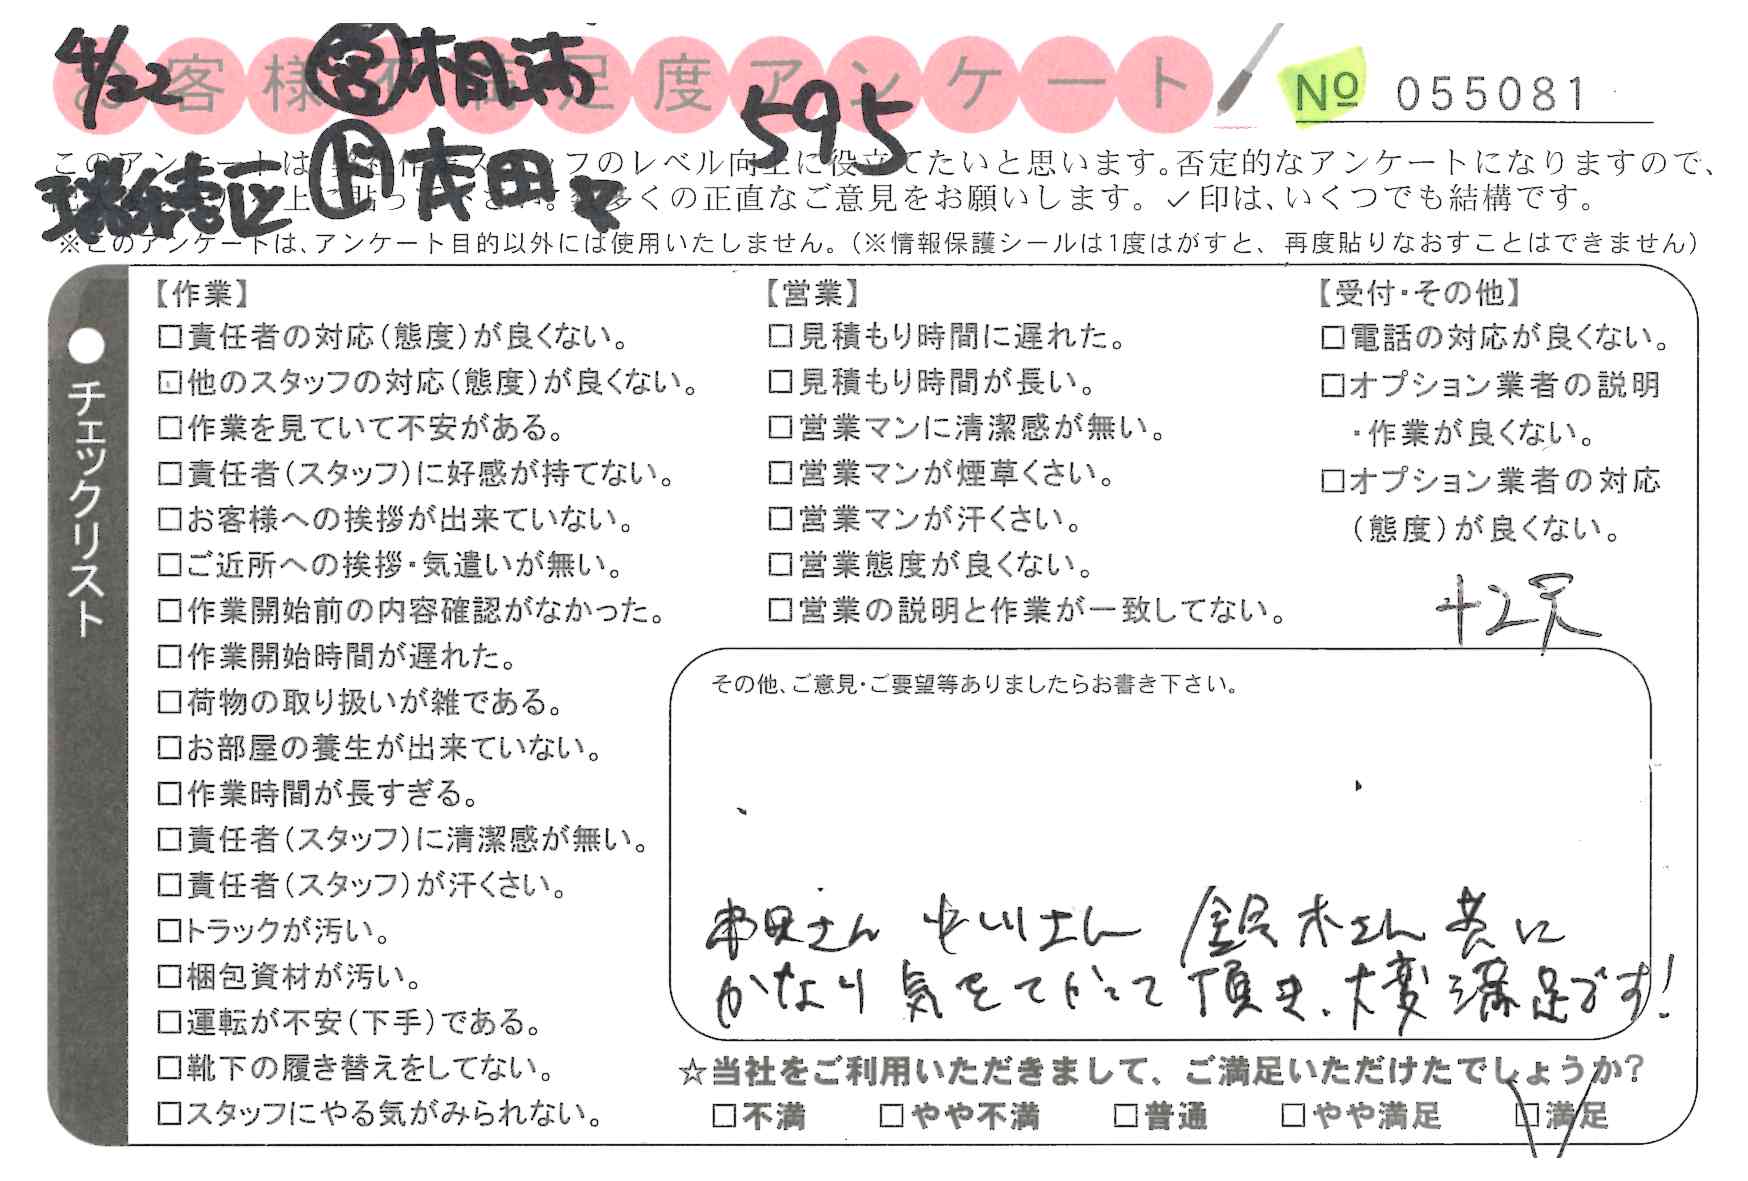 4/22 ㊂相満
お客様不満足度アンケート 595 № 055081
このアンケートは、弊社作業スタッフのレベル向上に役立てたいと思います。否定的なアンケートになりますので、
瑞穂区 上に貼って下さい。数多くの正直なご意見をお願いします。✓印は、いくつでも結構です。
茂田
※このアンケートは、アンケート目的以外には使用いたしません。(※情報保護シールは1度はがすと、再度貼りなおすことはできません)
●チェックリスト
【作業】
□責任者の対応(態度)が良くない。
□他のスタッフの対応(態度)が良くない。
□作業を見ていて不安がある。
□責任者(スタッフ)に好感が持てない。
□お客様への挨拶が出来ていない。
□ご近所への挨拶・気遣いが無い。
□作業開始前の内容確認がなかった。
□作業開始時間が遅れた。
□荷物の取り扱いが雑である。
□お部屋の養生が出来ていない。
□作業時間が長すぎる。
□責任者(スタッフ)に清潔感が無い。
□責任者(スタッフ)が汗くさい。
□トラックが汚い。
□梱包資材が汚い。
□運転が不安(下手)である。
□靴下の履き替えをしてない。
□スタッフにやる気がみられない。
【営業】
□見積もり時間に遅れた。
□見積もり時間が長い。
□営業マンに清潔感が無い。
□営業マンが煙草くさい。
□営業マンが汗くさい。
□営業態度が良くない。
□営業の説明と作業が一致してない。
【受付・その他】
□電話の対応が良くない。
□オプション業者の説明
・作業が良くない。
□オプション業者の対応
(態度)が良くない。
その他、ご意見・ご要望等ありましたらお書き下さい。
さん 中川さん 鈴木さん 共に
かなり気をつかって頂き、大変満足です!
☆当社をご利用いただきまして、ご満足いただけたでしょうか?
□不満 □やや不満 □普通 □やや満足 ☑満足